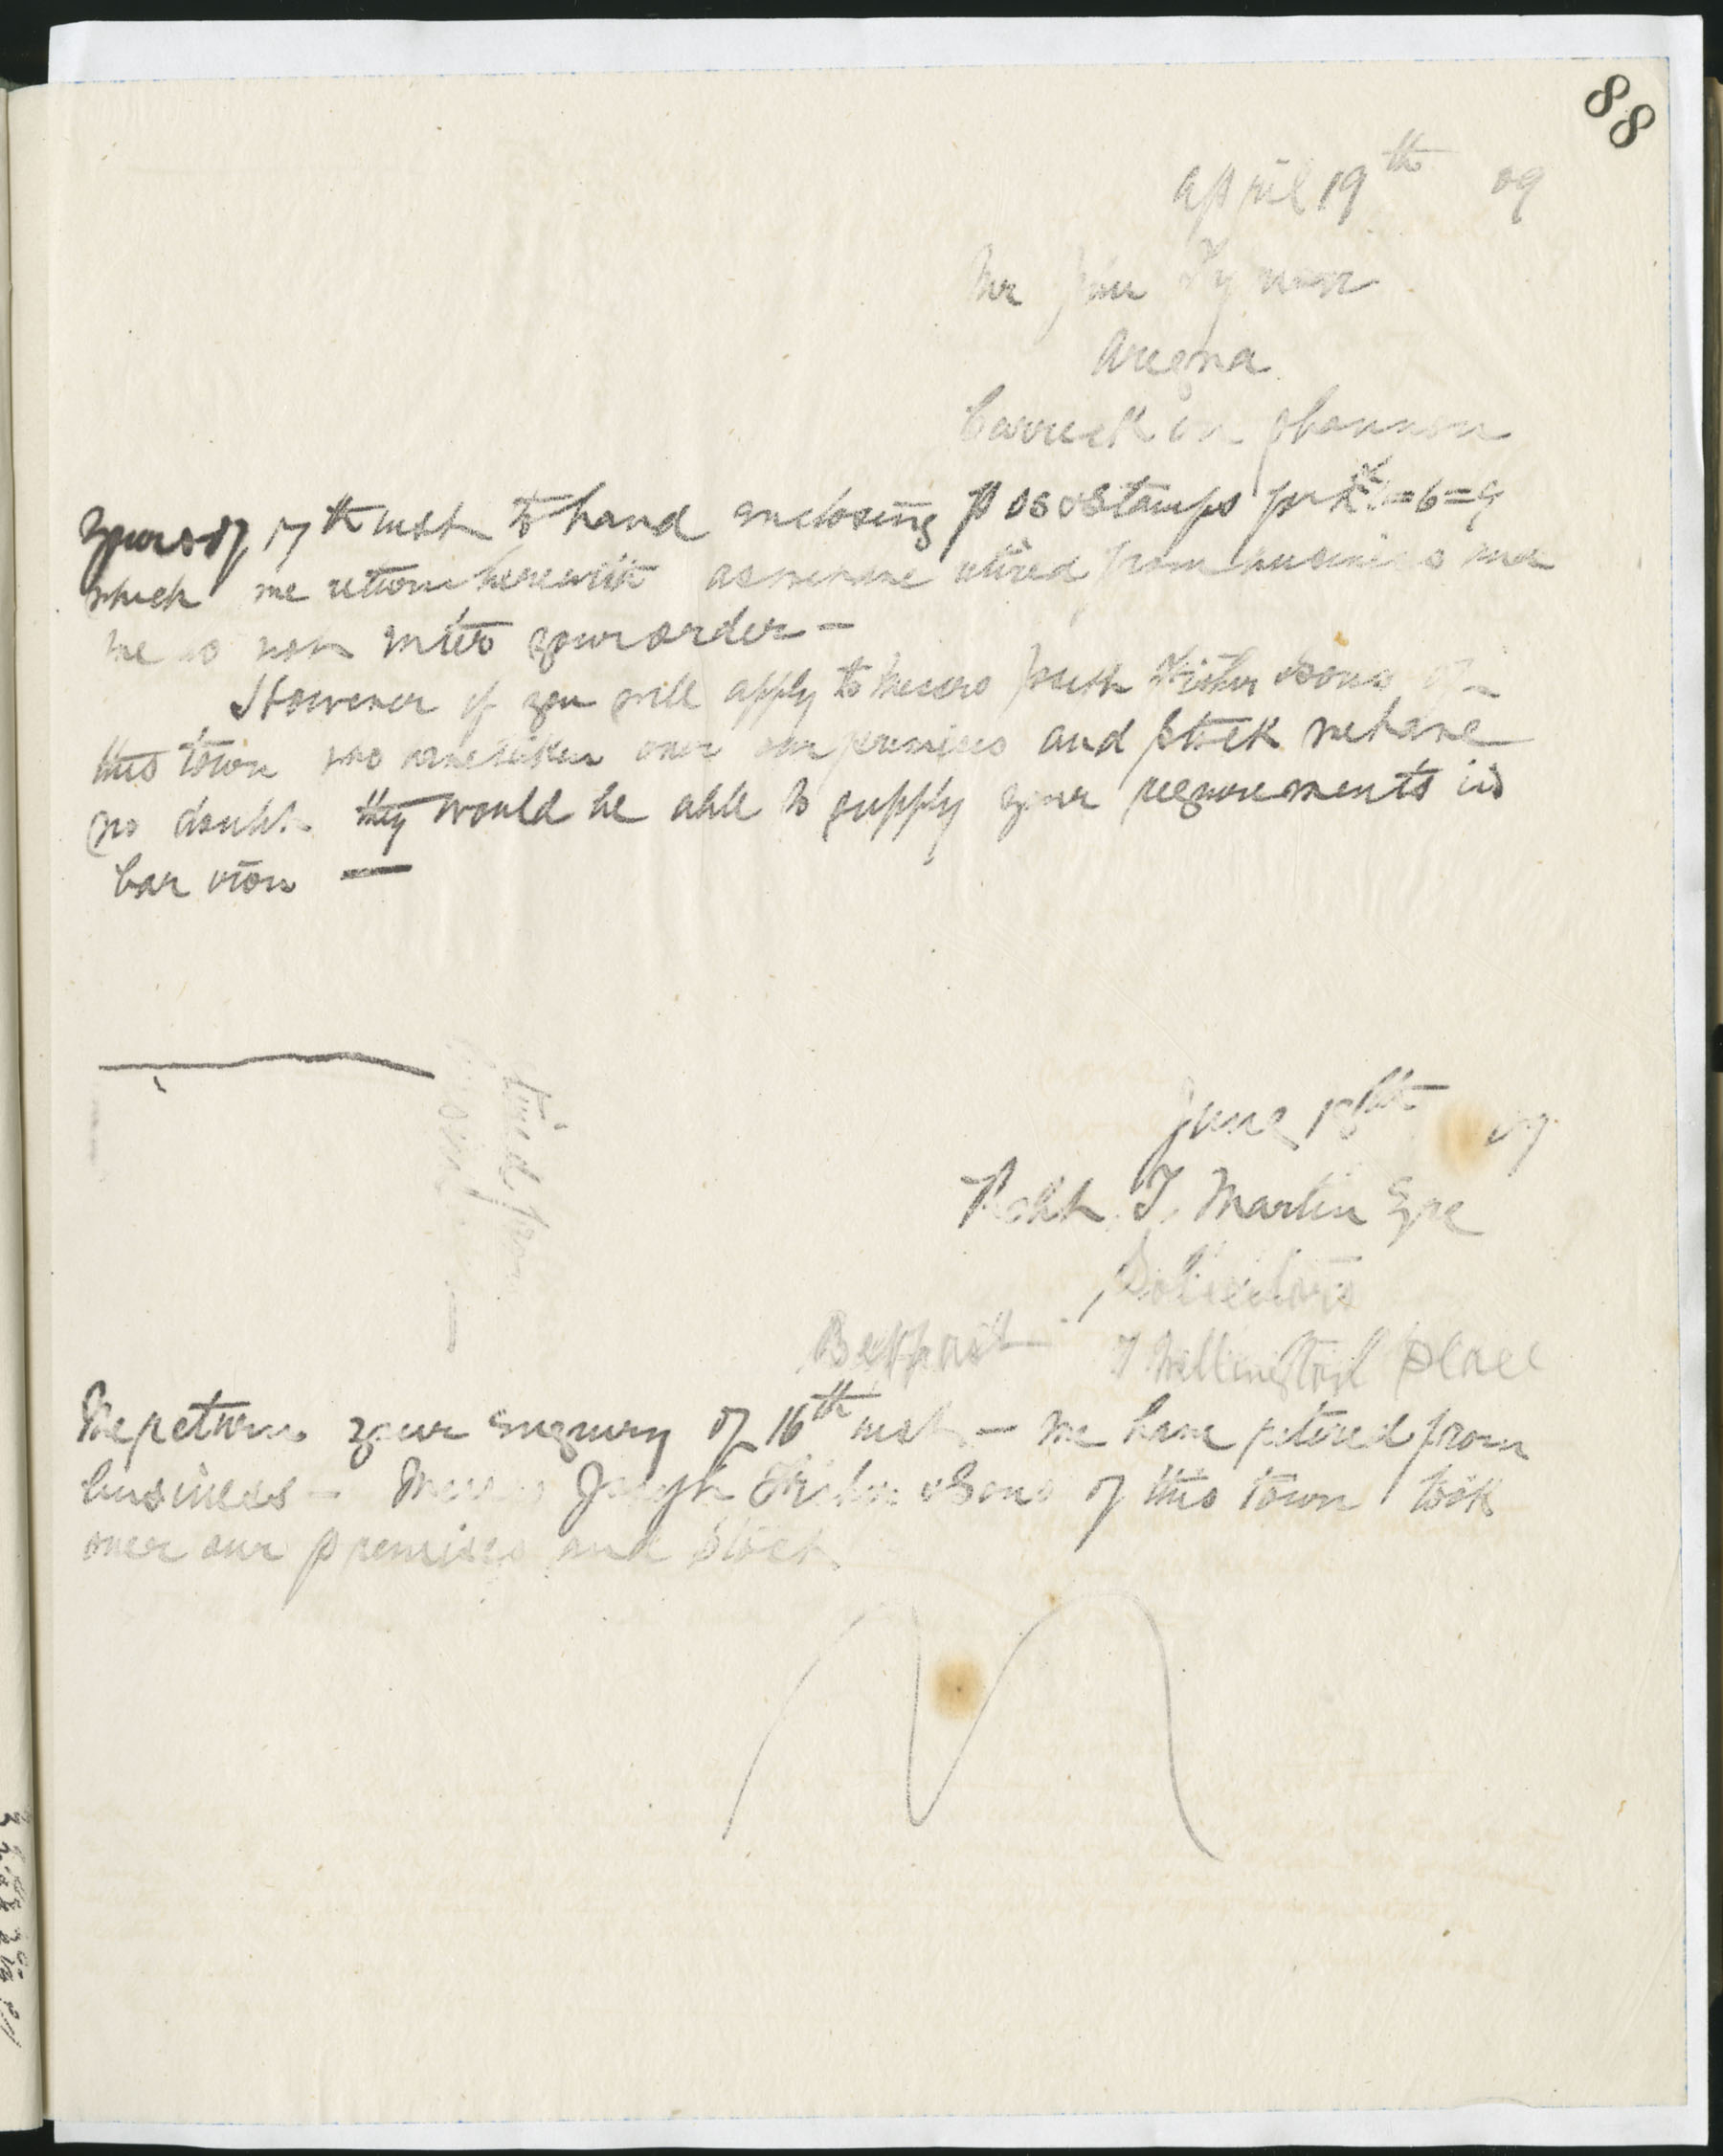 88
April 19th 09
Mr John Tynan
Arigna
Carrick on Shannon
Yours of 17th inst to hand enclosing P Os & Stamps for =6=9
which we return herewith as we have retired from business and
we do not enter your order —
However if you will apply to Messrs Joseph Fisher & Sons of
this town who have taken over our premises and stock we have
no doubt they would be able to supply your requirements in
bar iron —
June 18th 09
Robt T. Martin Esqre
Solicitors
Belfast 7 Wellington Place
We return your enquiry of 16th inst — we have retired from
business — Messrs Joseph Fisher & Sons of this town took
over our premises and stock
tired from